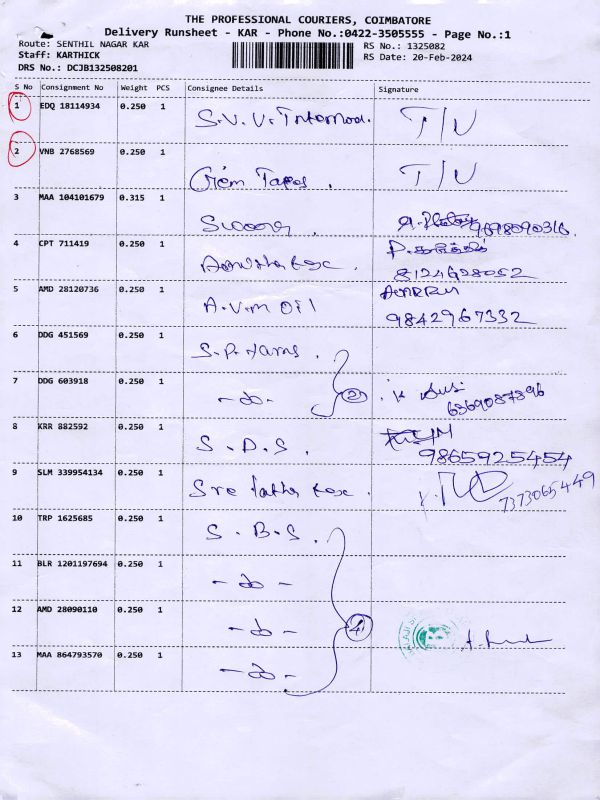 THE PROFESSIONAL COURIERS, COIMBATORE
Delivery Runsheet - KAR - Phone No.:0422-3505555 - Page No.:1
Route: SENTHIL NAGAR KAR
RS No.: 1325082
Staff: KARTHICK
RS Date: 20-Feb-2024
DRS No.: DCJB132508201
S No Consignment No Weight PCS Consignee Details Signature
1 EDQ 18114934 0.250 1 S.V.V. T/U
2 VNB 2768569 0.250 1 Gem T/U
3 MAA 104101679 0.315 1 9698090316
4 CPT 711419 0.250 1 8124628052
5 AMD 28120736 0.250 1 A.V.M Oil 9842967332
6 DDG 451569 0.250 1 S.P.
7 DDG 603918 0.250 1 - do - 2 6369087396
8 KRR 882592 0.250 1 S.D.S. 9865925454
9 SLM 339954134 0.250 1 Sre 7373065449
10 TRP 1625685 0.250 1 S.B.S.
11 BLR 1201197694 0.250 1 - do -
12 AMD 28090110 0.250 1 - do - 4
13 MAA 864793570 0.250 1 - do -